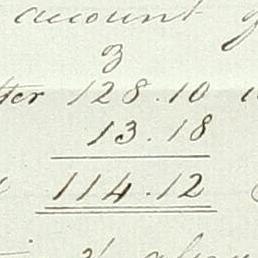 account
3
ter 128.10
13.18
114.12